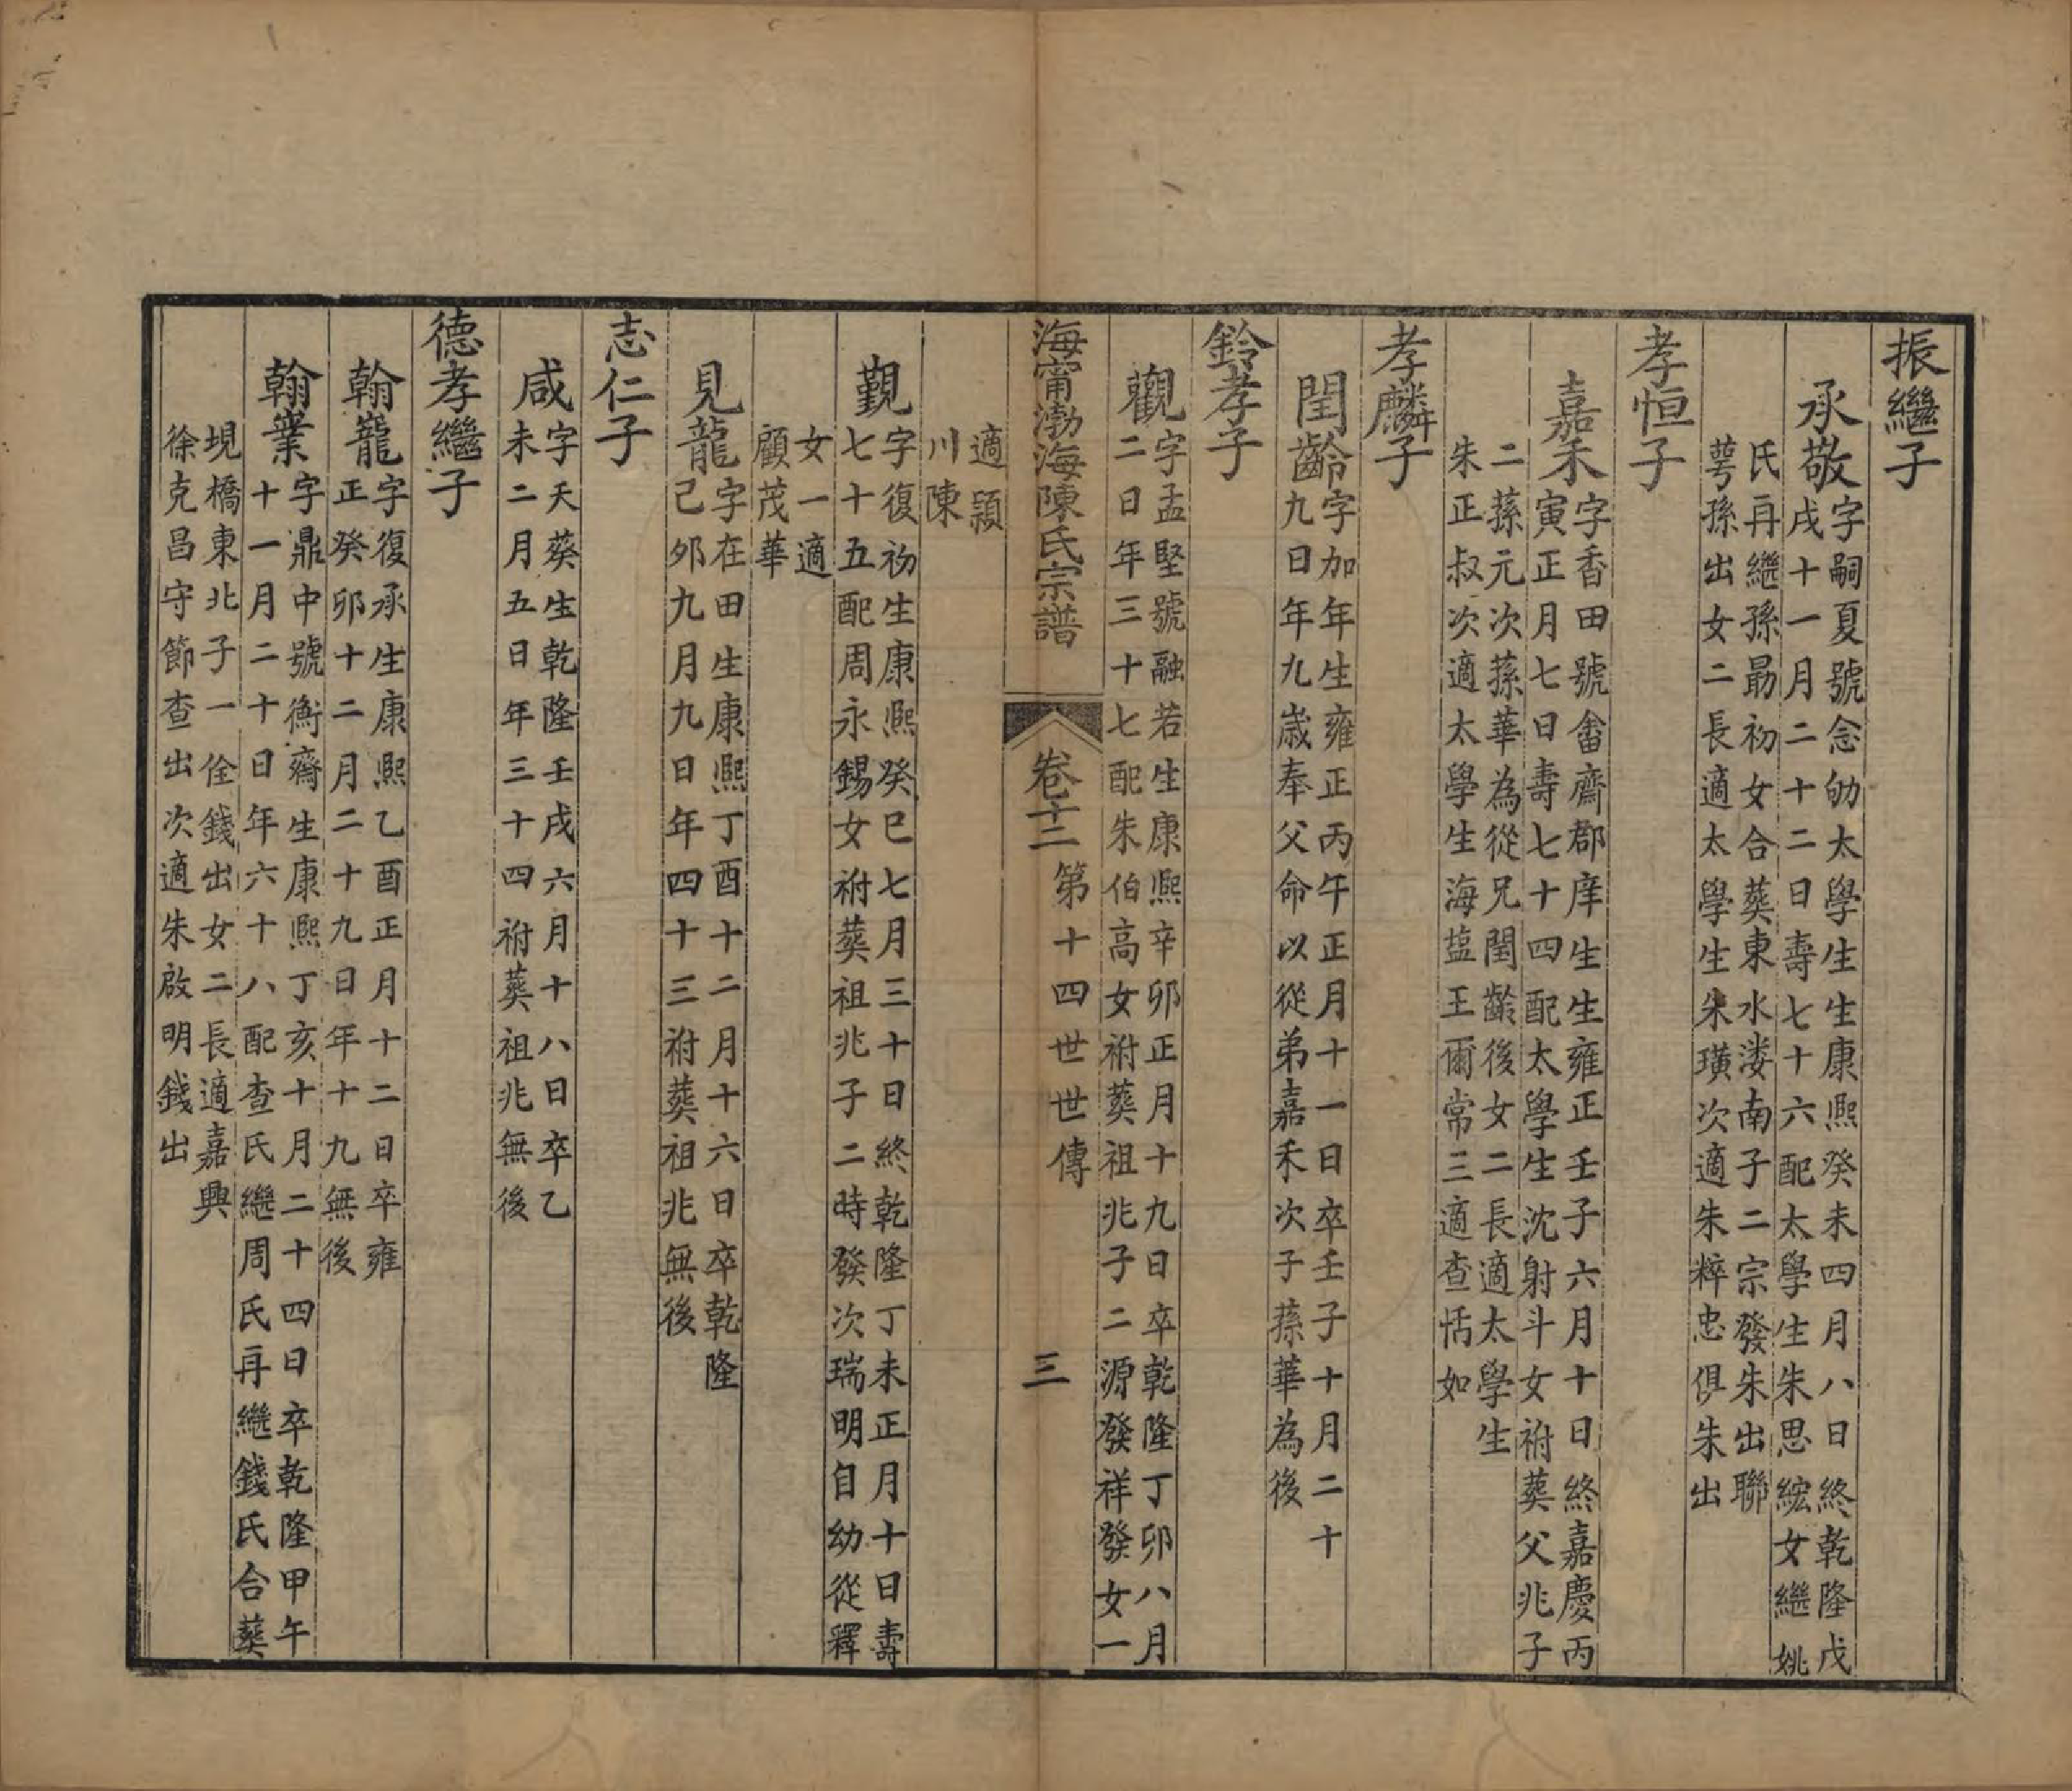 振繼子
承敬
字嗣夏號念劬太學生生康熙癸未四月八日終乾隆戊
戌十一月二十二日壽七十六配太學生朱思綋女繼姚
氏再繼孫勗初女合葬東水溇南子二宗發朱出聯
萼孫出女二長適太學生朱璜次適朱粹忠俱朱出
孝恒子
嘉禾
字香田號畬齋郡庠生生雍正壬子六月十日終嘉慶丙
寅正月七日壽七十四配太學生沈射斗女祔葬父兆子
二蓀元次蓀華為從兄閏齡後女二長適太學生
朱正叔次適太學生海塩王爾常三適查恬如
孝麟子
閏齡
字加年生雍正丙午正月十一日卒壬子十月二十
九日年九歲奉父命以從弟嘉禾次子蓀華為後
鈴孝子
觀
字孟堅號融若生康熙辛卯正月十九日卒乾隆丁卯八月
二日年三十七配朱伯高女祔葬祖兆子二源發祥發女一
適潁
川陳
海甯渤海陳氏宗譜
卷十二
第十四世世傳
三
觐
字復初生康熙癸巳七月三十日終乾隆丁未正月十日壽
七十五配周永錫女祔葬祖兆子二時發次瑞明自幼從釋
女一適
顧茂華
見龍
字在田生康熙丁酉十二月十六日卒乾隆
己夘九月九日年四十三祔葬祖兆無後
志仁子
咸
字天葵生乾隆壬戌六月十八日卒乙
未二月五日年三十四祔葬祖兆無後
德孝繼子
翰寵
字復承生康熙乙酉正月十二日卒雍
正癸卯十二月二十九日年十九無後
翰業
字鼎中號衡齋生康熙丁亥十月二十四日卒乾隆甲午
十一月二十日年六十八配查氏繼周氏再繼錢氏合葬
垷橋東北子一佺錢出女二長適嘉興
徐克昌守節查出次適朱啟明錢出